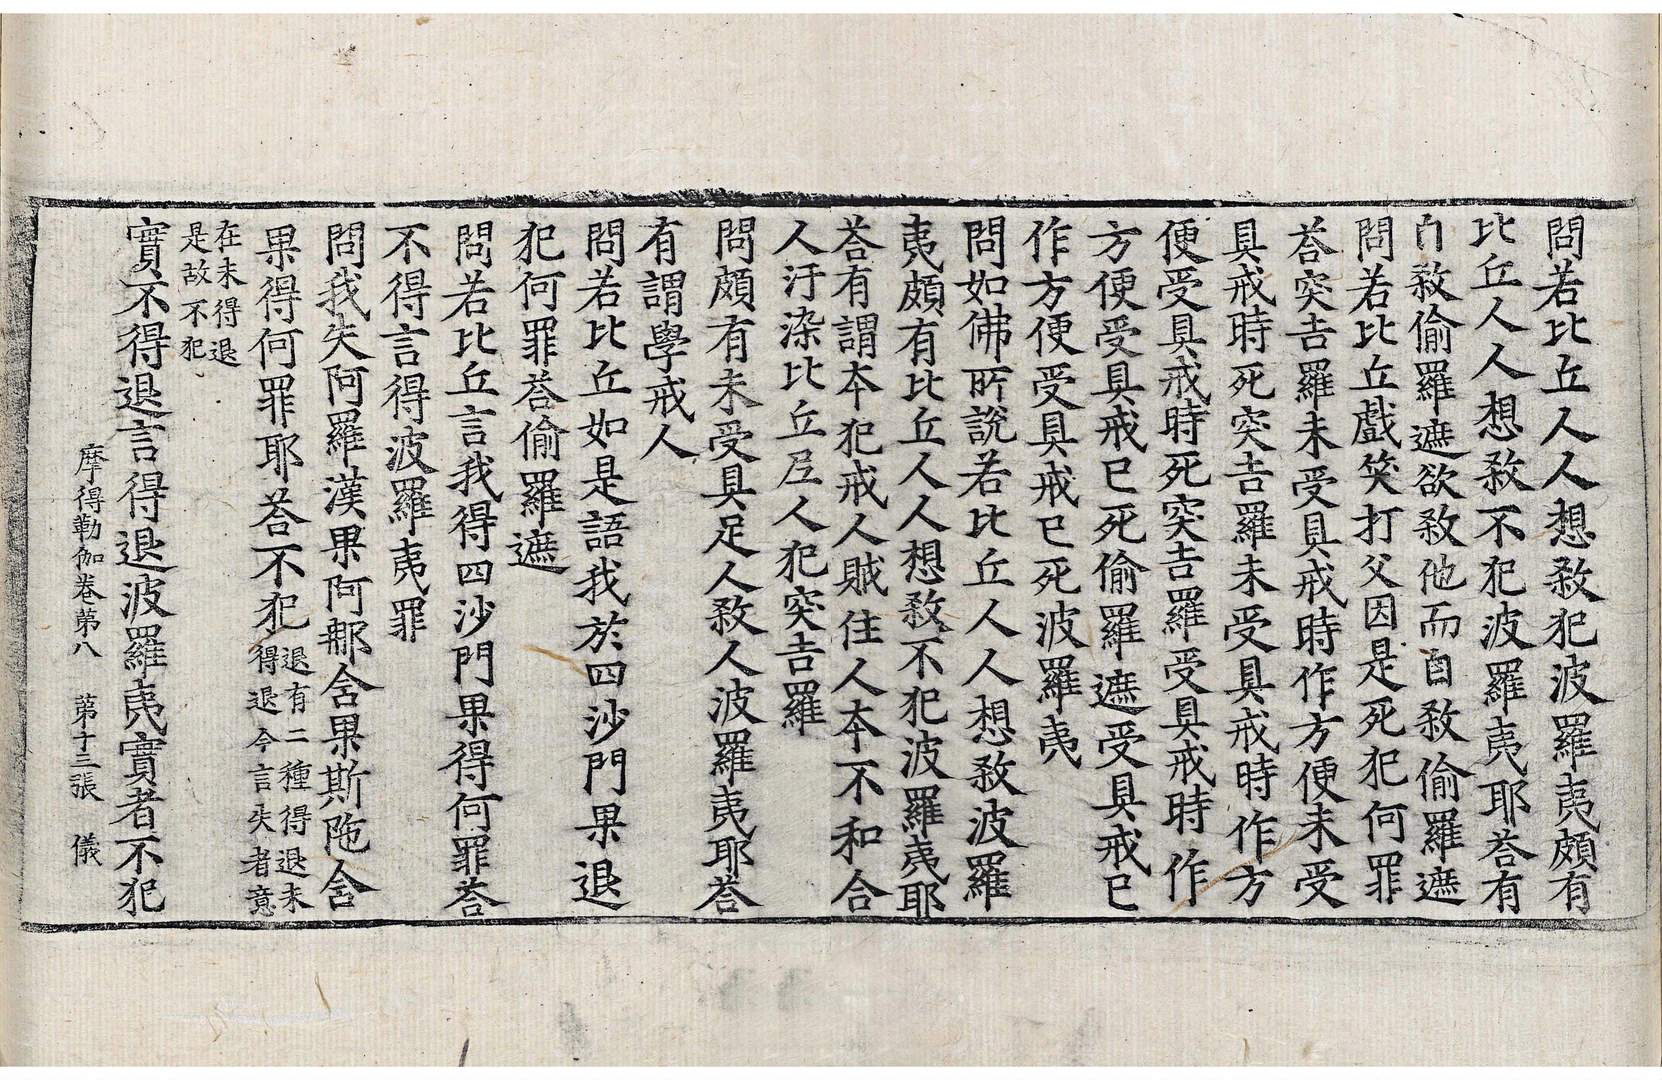 問若比丘人人想敎犯波羅夷頗有
比丘人人想敎不犯波羅夷耶荅有
自敎偷羅遮欲敎他而自敎偷羅遮
問若比丘戲笑打父因是死犯何罪
荅突吉羅未受具戒時作方便未受
具戒時死突吉羅未受具戒時作方
便受具戒時死突吉羅受具戒時作
方便受具戒已死偷羅遮受具戒已
作方便受具戒已死波羅夷
問如佛所說若比丘人人想敎波羅
夷頗有比丘人人想敎不犯波羅夷耶
荅有謂本犯戒人賊住人本不和合
人汙染比丘尼人犯突吉羅
問頗有未受具足人敎人波羅夷耶荅
有謂學戒人
問若比丘如是語我於四沙門果退
犯何罪荅偷羅遮
問若比丘言我得四沙門果得何罪荅
不得言得波羅夷罪
問我失阿羅漢果阿那含果斯陁含
果得何罪耶荅不犯退有二種得退未
得退今言失者意
在未得退
是故不犯
實不得退言得退波羅夷實者不犯
摩得勒伽卷苐八 第十三張 儀